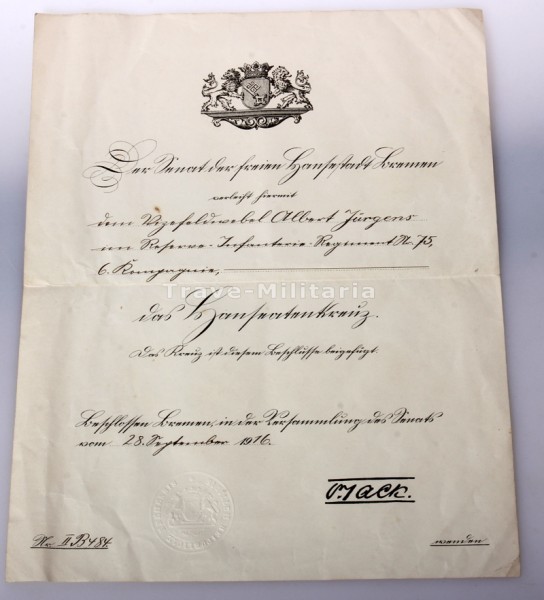 Der Senat der freien Hansestadt Bremen
verleiht hiermit
dem Vizefeldwebel Albert Jürgens
im Reserve-Infanterie-Regiment Nr. 75,
6. Kompagnie,
Trave-Militaria
das Hanseatenkreuz.
Das Kreuz ist diesem Beschlusse beigefügt.
Beschlossen Bremen, in der Versammlung des Senats
vom 28. September 1916.
Nr. II B 484.
wenden